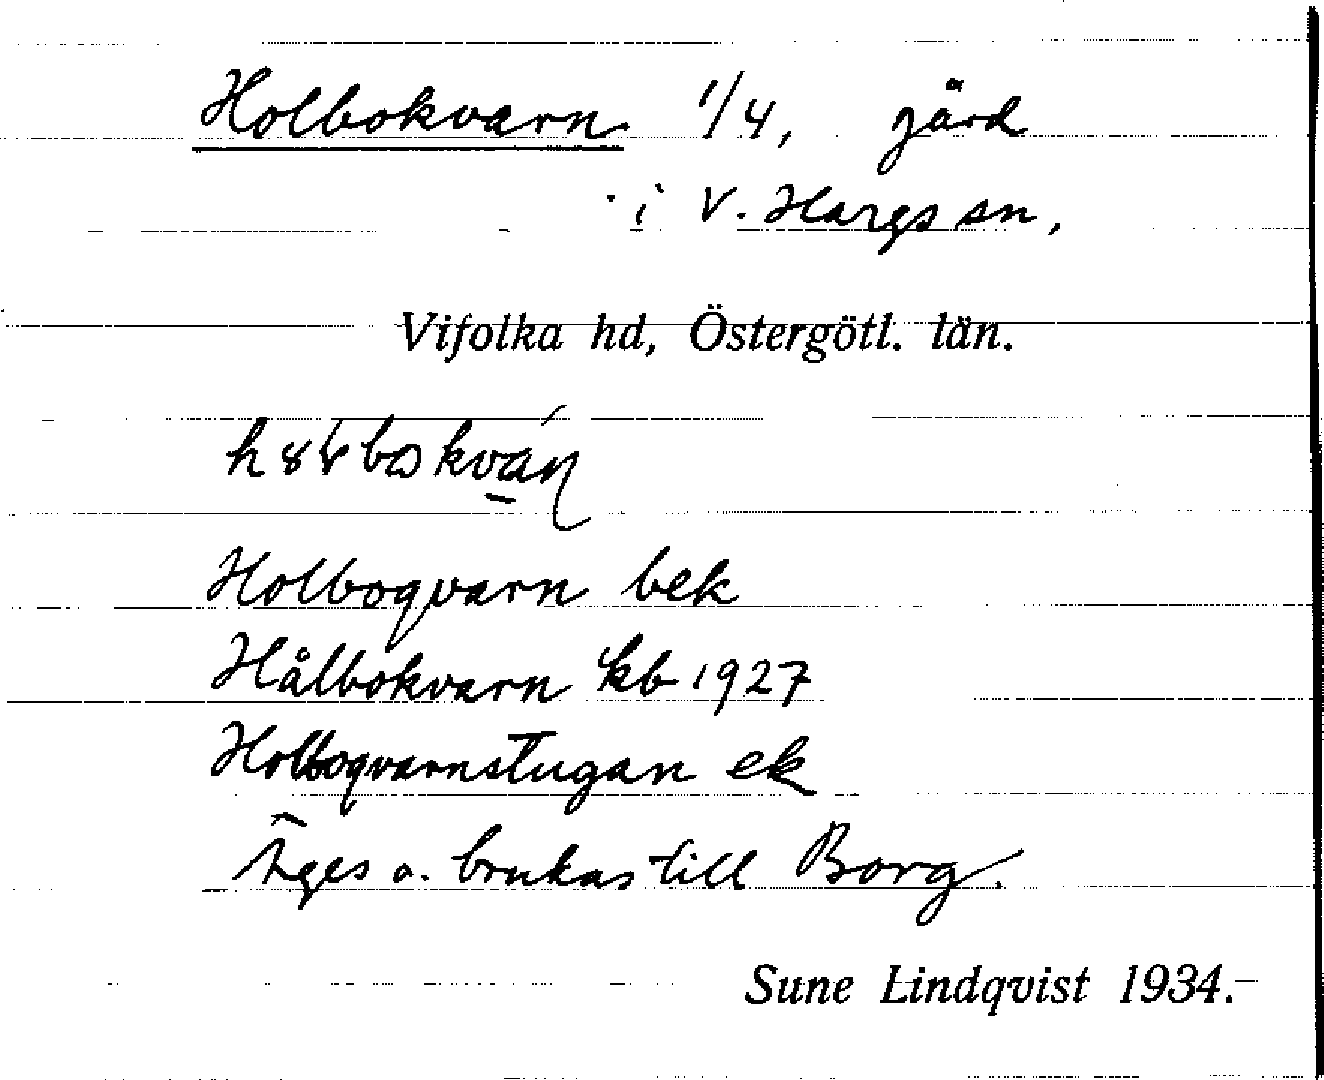 Holbokvarn 1/4, gård
i V. Hargs sn,
Vifolka hd, Östergötl. län.
Holboqvarn bek
Hålbokvarn kb 1927
Holboqvarnstugan ek
Äges o. brukas till Borg.
Sune Lindqvist 1934.-